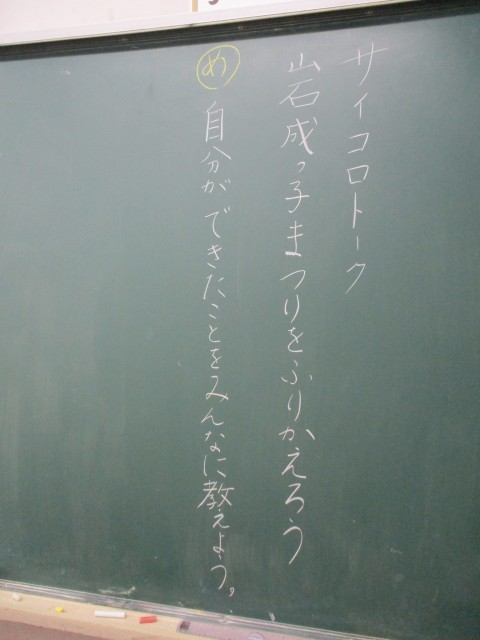 サイコロトーク
岩成っ子まつりをふりかえろう
め 自分ができたことをみんなに教えよう。